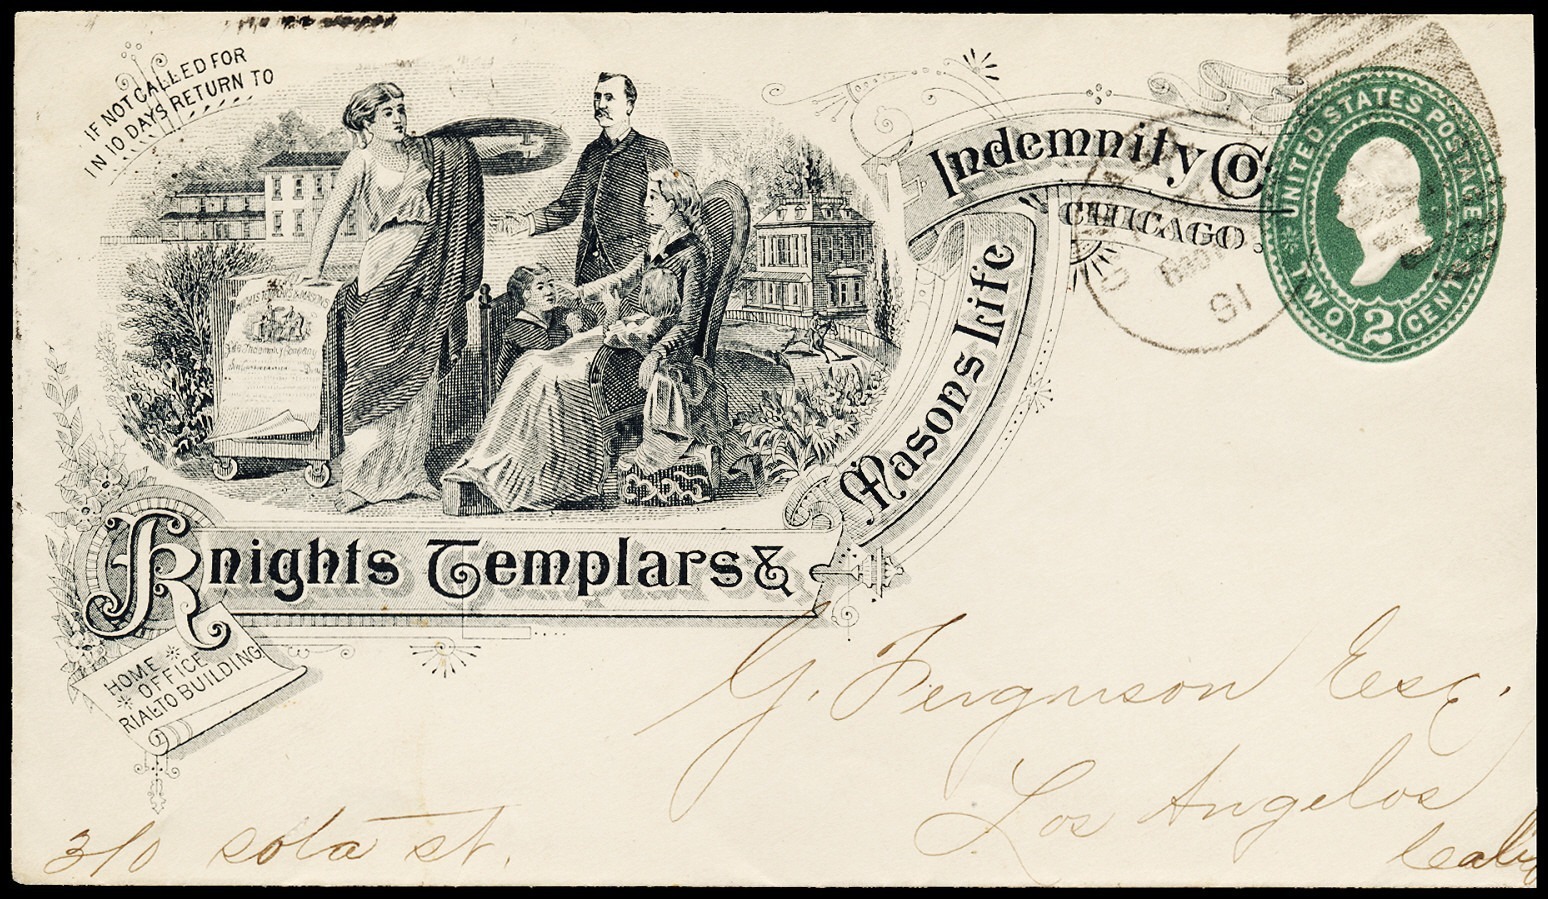 IF NOT CALLED FOR
IN 10 DAYS RETURN TO
Knights Templars &
Masons Life
Indemnity Co.
CHICAGO.
HOME
OFFICE
RIALTO BUILDING
UNITED STATES POSTAGE
TWO 2 CENTS
91
G. Ferguson Esq.
Los Angelos
310 sota st.